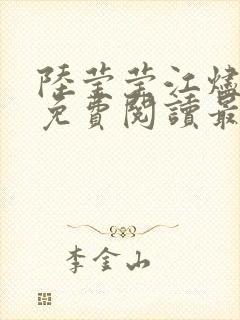 陸瑩瑩江燼
免費閱讀最
李金山